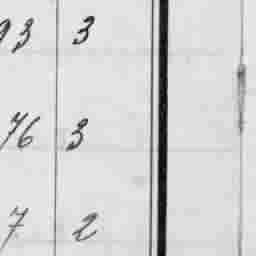 93 3
76 3
7 2